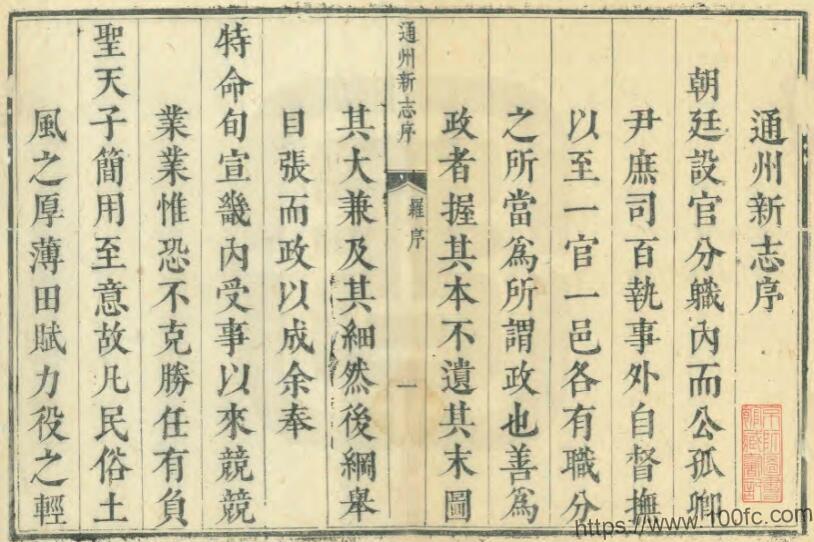 通州新志序
朝廷設官分軄內而公孤卿
尹庶司百執事外自督撫
以至一官一邑各有職分
之所當爲所謂政也善爲
政者握其本不遺其末圖
通州新志序
羅序
一
其大兼及其細然後綱舉
目張而政以成余奉
特命旬宣畿內受事以來競競
業業惟恐不克勝任有負
聖天子簡用至意故凡民俗土
風之厚薄田賦力役之輕
京師圖書
館藏書記
https://www.100fc.com